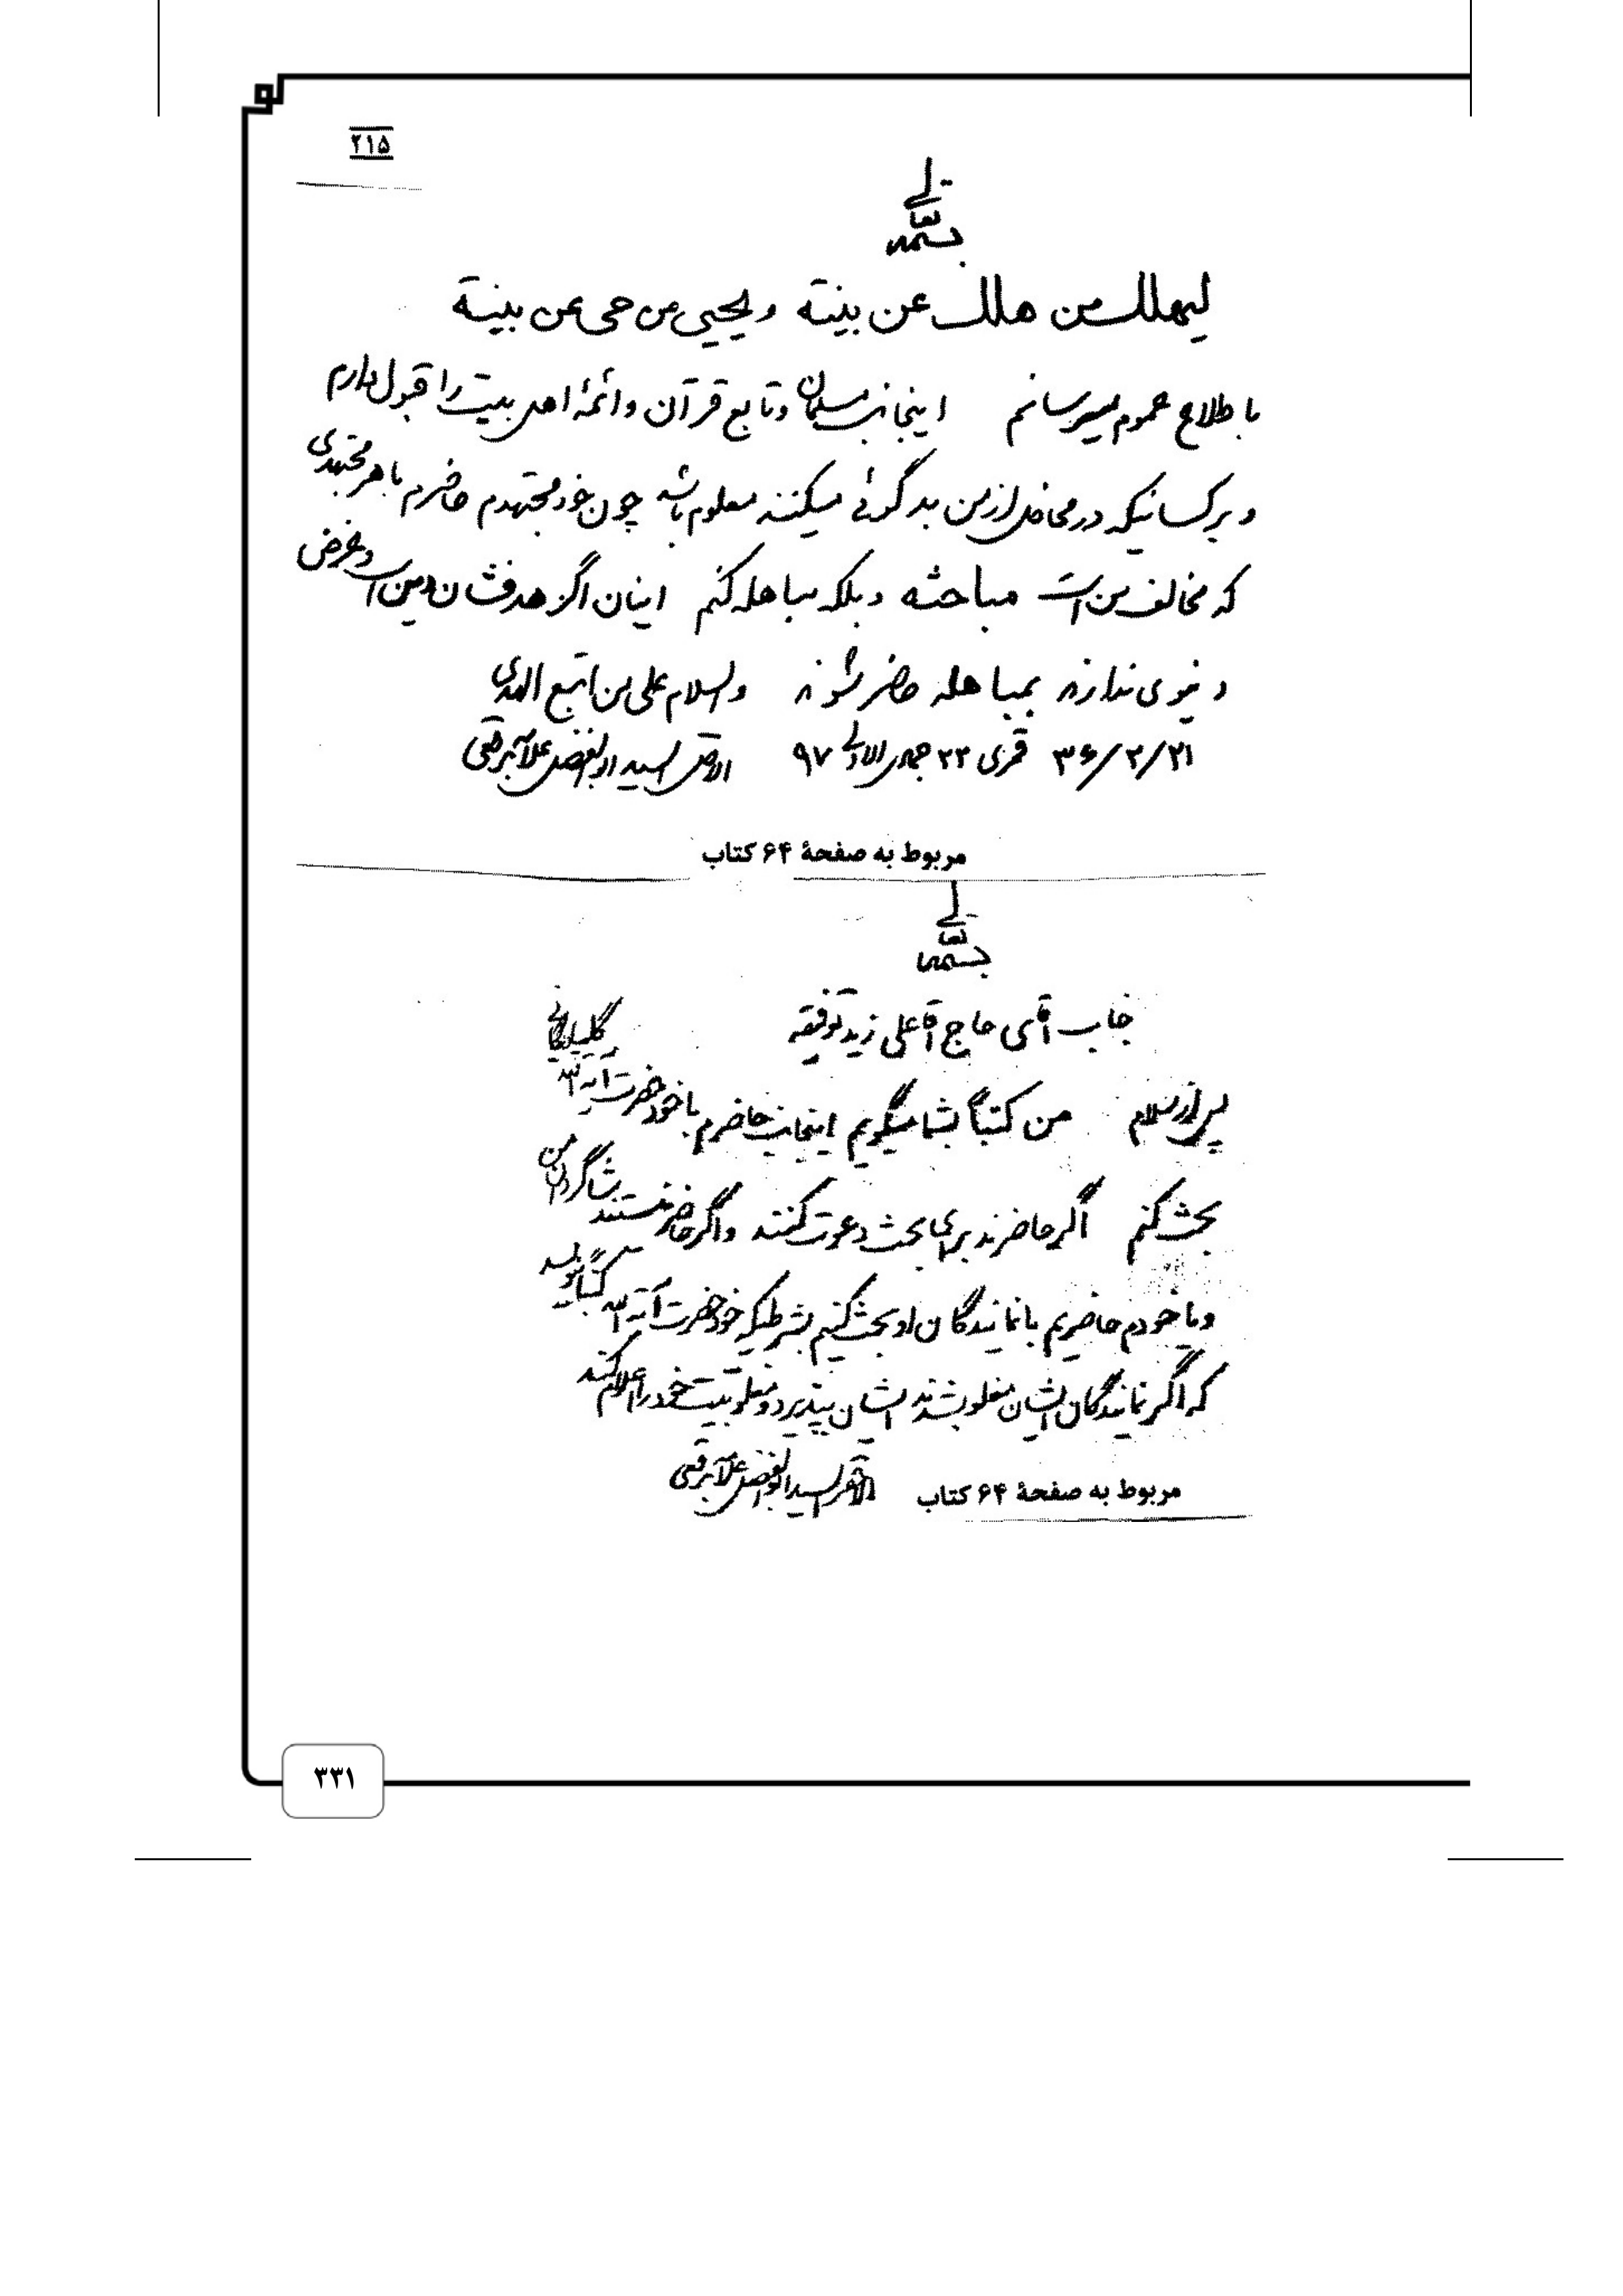 ۲۱۵
بسمه تعالی
لیهلک من هلک عن بینة و یحیی من حی عن بینة
باطلاع عموم میرسانم اینجانب مسلمان و تابع قرآن و ائمهٔ اهل بیت را قبول دارم
و بر کسانیکه در محافل از من بدگوئی میکنند معلوم باشد چون خود مجتهدم حاضرم با هر مجتهدی
که مخالف من است مباحثه و بلکه مباهله کنم اینان اگر هدفشان دین است و غرض
دنیوی ندارند بمباهله حاضر شوند والسلام علی من اتبع الهدی
۳۶/۲/۲۱ قمری ۲۳ جمادی الاولی ۹۷ الاقل السید ابوالفضل علامه برقعی
مربوط به صفحهٔ ۶۴ کتاب
بسمه تعالی
جناب آقای حاج آقا علی زید توفیقه
پس از سلام من کتباً بشما میگویم اینجانب حاضرم با خود حضرت آیة الله گلپایگانی
بحث کنم اگر حاضرند برای بحث دعوت کنند و اگر حاضر نیستند شاگردان من
و یا خودم حاضریم با نمایندگان او بحث کنیم بشرطیکه خود حضرت آیة الله کتباً بنویسد
که اگر نمایندگان ایشان مغلوب شدند ایشان بپذیرد و مغلوبیت خود را اعلام کند
الاحقر السید ابوالفضل علامه برقعی
مربوط به صفحهٔ ۶۴ کتاب
۳۳۱